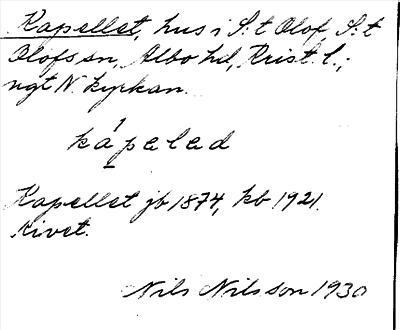 Kapellet, hus i S:t Olof, S:t
Olofs sn, Albo hd, Krist. l.;
ngt N. kyrkan.
kápeled
Kapellet jb 1874, kb 1921.
Rivet.
Nils Nilsson 1930